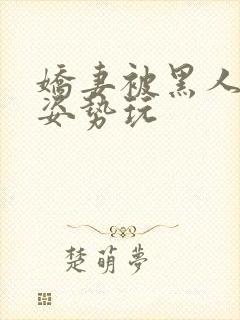 嬌妻被黑人
姿勢玩
楚萌夢